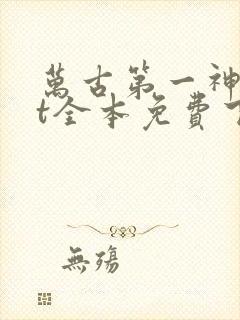 萬古第一神
t全本免費下
無殤